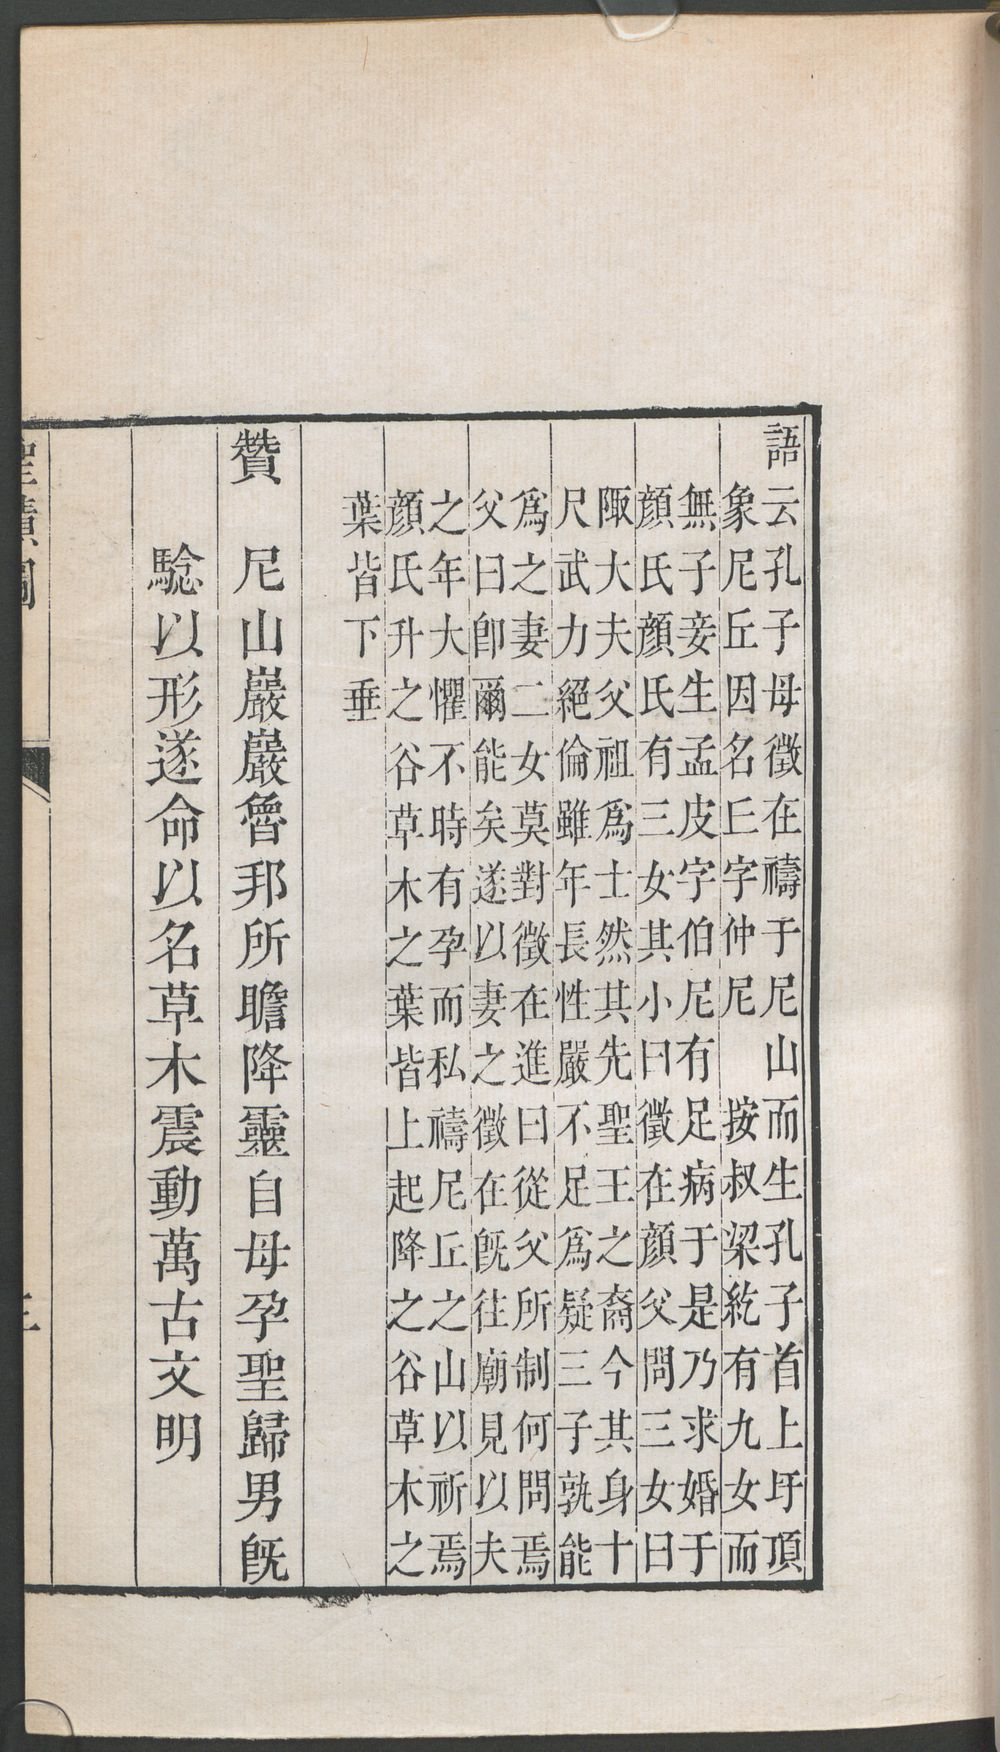 語云孔子母徵在禱于尼山而生孔子首上圩頂
象尼丘因名丘字仲尼 按叔梁紇有九女而
無子妾生孟皮字伯尼有足病于是乃求婚于
顏氏顏氏有三女其小曰徵在顏父問三女曰
陬大夫父祖爲士然其先聖王之裔今其身十
尺武力絕倫雖年長性嚴不足爲疑三子孰能
爲之妻二女莫對徵在進曰從父所制何問焉
父曰卽爾能矣遂以妻之徵在旣往廟見以夫
之年大懼不時有孕而私禱尼丘之山以祈焉
顏氏升之谷草木之葉皆上起降之谷草木之
葉皆下垂
贊 尼山巖巖魯邦所瞻降靈自母孕聖歸男旣
騐以形遂命以名草木震動萬古文明
聖蹟圖
三